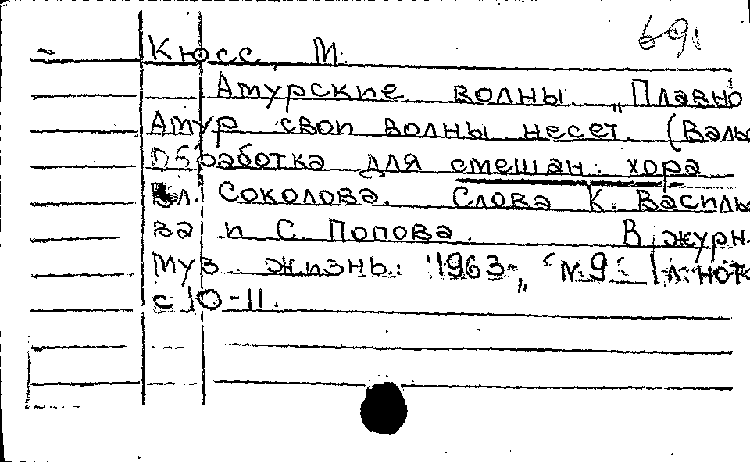 69.
Кюсс, М.
Амурские волны. „Плавно
Амур свои волны несет. (Вальс
Обработка для смешан. хора
Вл. Соколова. Слова К. Василь
ва и С. Попова. В журн.
Муз. жизнь. 1963, № 9.
с 10-11.